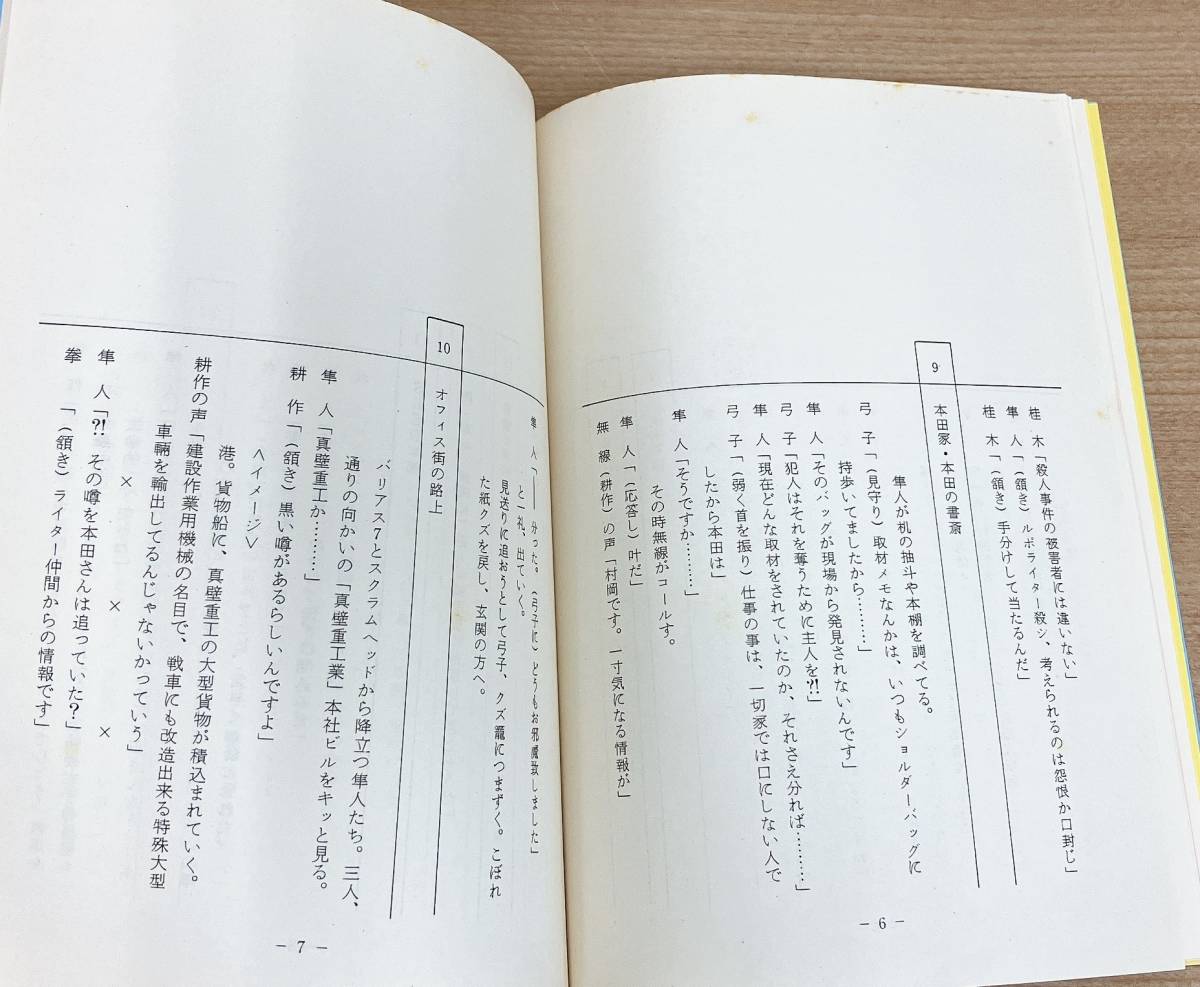 桂 木「殺人事件の被害者には違いない」
隼 人「(頷き) ルポライター殺シ、考えられるのは怨恨か口封じ」
桂 木「(頷き) 手分けして当たるんだ」
9 本田家・本田の書斎
隼人が机の抽斗や本棚を調べてる。
弓 子「(見守り) 取材メモなんかは、いつもショルダーバッグに
持歩いてましたから………」
隼 人「そのバッグが現場から発見されないんです」
弓 子「犯人はそれを奪うために主人を⁈」
隼 人「現在どんな取材をされていたのか、それさえ分れば………」
弓 子「(弱く首を振り) 仕事の事は、一切家では口にしない人で
したから本田は」
隼 人「そうですか………」
その時無線がコールす。
隼 人「(応答し) 叶だ」
無 線 (耕作) の声「村岡です。一寸気になる情報が」
－6－
隼 人「―― 分った。(弓子に) どうもお邪魔致しました」
と一礼、出ていく。
見送りに追おうとして弓子、クズ籠につまずく。こぼれ
た紙クズを戻し、玄関の方へ。
10 オフィス街の路上
バリアス7とスクラムヘッドから降立つ隼人たち。三人、
通りの向かいの「真壁重工業」本社ビルをキッと見る。
隼 人「真壁重工か………」
耕 作「(頷き) 黒い噂があるらしいんですよ」
＜イメージ＞
港。貨物船に、真壁重工の大型貨物が積込まれていく。
耕作の声「建設作業用機械の名目で、戦車にも改造出来る特殊大型
車輛を輸出してるんじゃないかっていう」
× × ×
隼 人「⁈ その噂を本田さんは追っていた？」
拳 「(頷き) ライター仲間からの情報です」
－7－